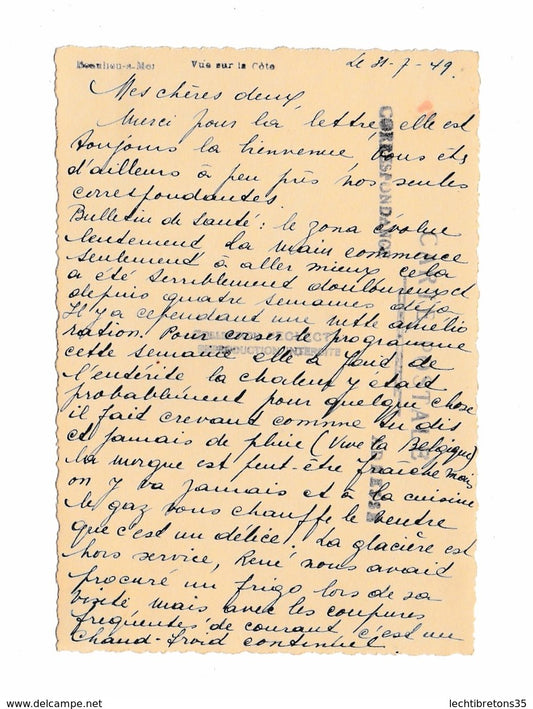 Beaulieu-s-Mer Vue sur la Côte
Le 31-7-49.
Mes chères deux,
Merci pour la lettre, elle est
toujours la bienvenue, vous êts
d'ailleurs à peu près nos seules
correspondantes.
Bulletin de Santé: le zona évolue
lentement. La main commence
seulement à aller mieux, cela
a été terriblement douloureux et
depuis quatre semaines déjà
Il y a cependant une nette amélio
ration. Pour corser le programme
cette semaine elle a fond de
l'entérite la chaleur y était
probablement pour quelque chose
il fait crevant comme tu dis
et jamais de pluie (Vive la Belgique)
la morgue est peut-être fraîche mais
on y va jamais et à la cuisine
le gaz vous chauffe le ventre
que c'est un délice. La glacière est
hors service, René nous avait
procuré un frigo lors de sa
visite mais avec les coupures
fréquentes de courant c'est un
chaud-froid continuel.
CARTE POSTALE
CORRESPONDANCE
ADRESSE
REPRODUCTION INTERDITE
https://www.delcampe.net
lechtibretons35